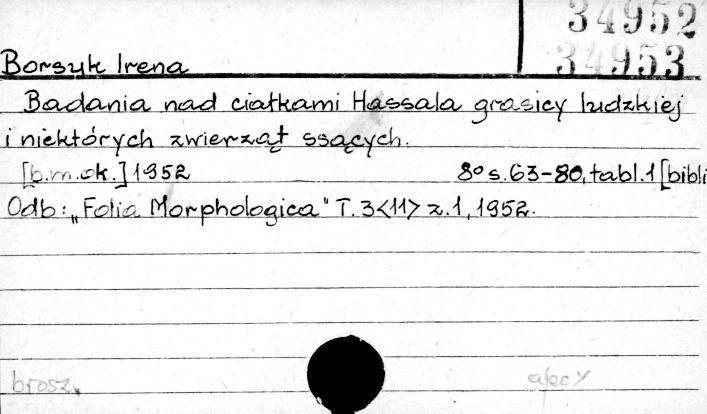 34952
34953
Borsyk Irena
Badania nad ciałkami Hassala grasicy ludzkiej
i niektórych zwierząt ssących.
[b.m.ok.] 1952 8° s. 63-80, tabl. 1 [bibli
Odb: „Folia Morphologica" T. 3<11> z. 1, 1952.
brosz.